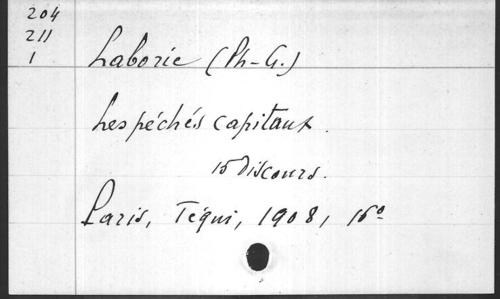 204
211
1
Laborie (Ph-G.)
Les péchés capitaux.
15 Discours.
Paris, Téqui, 1908, 16º